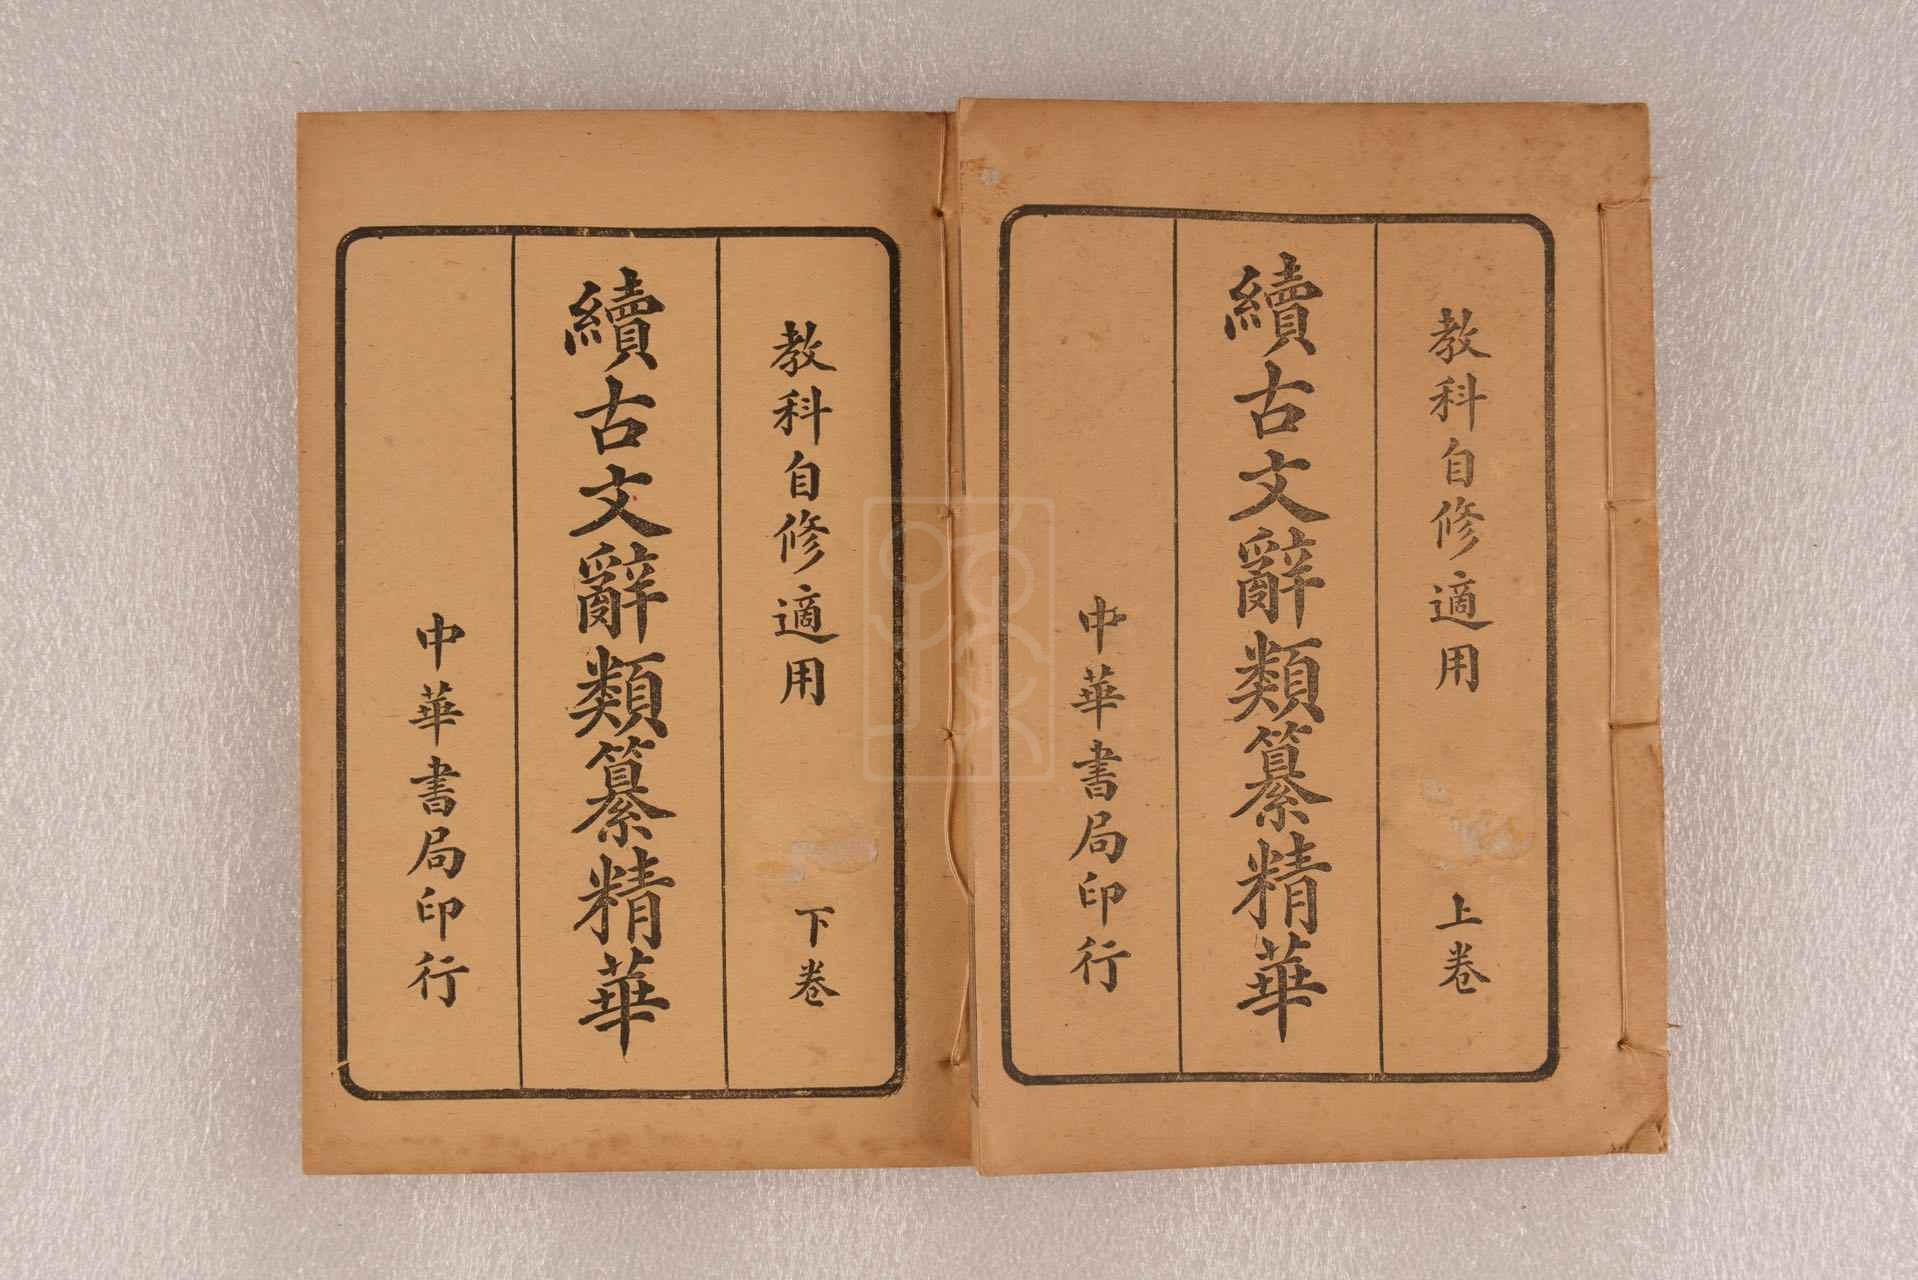 教科自修適用 上卷
續古文辭類纂精華
中華書局印行
教科自修適用 下卷
續古文辭類纂精華
中華書局印行